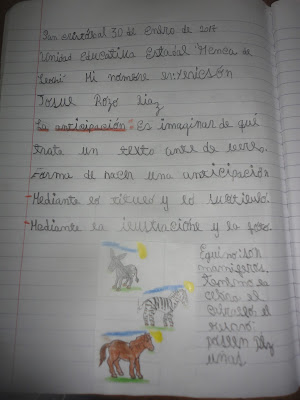 San cristóbal 30 de Enero de 2017
Unidad Educativa Estadal "Menca de
Leoni" Mi nombre es: Yeicsón
Josue Rozo Diaz
La anticipación: Es imaginar de qué
trata un texto ante de leerlo.
Forma de hacer una anticipación
-Mediante lo titulo y lo subtitulo.
-Mediante la ilustracione y la foto.
Equino: son
mamiferos.
también la
cebra el
caballos el
poseen
unas